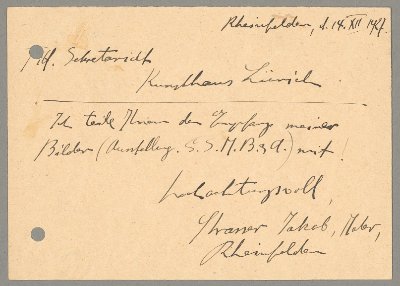 Rheinfelden, d. 14. XII
Sekretariat
Kunsthaus Zürich
Ich teile Ihnen den Empfang meiner
Bilder (Ausstellung G. S. M. B. & A.) mit!
Hochachtungsvoll,
Strasser Jakob, Maler,
Rheinfelden